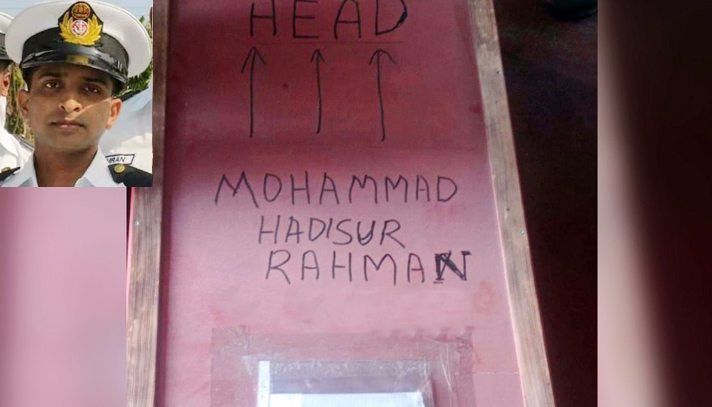 HEAD
MOHAMMAD
HADISUR
RAHMAN